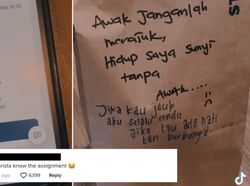 Awak Janganlah
merajuk,
Hidup saya sunyi
tanpa
Awak....
Jika kau jauh
aku selalu rindu
Jika kau ada hati
ku berbunga
rista know the assignment 😂
ago
6399
Reply